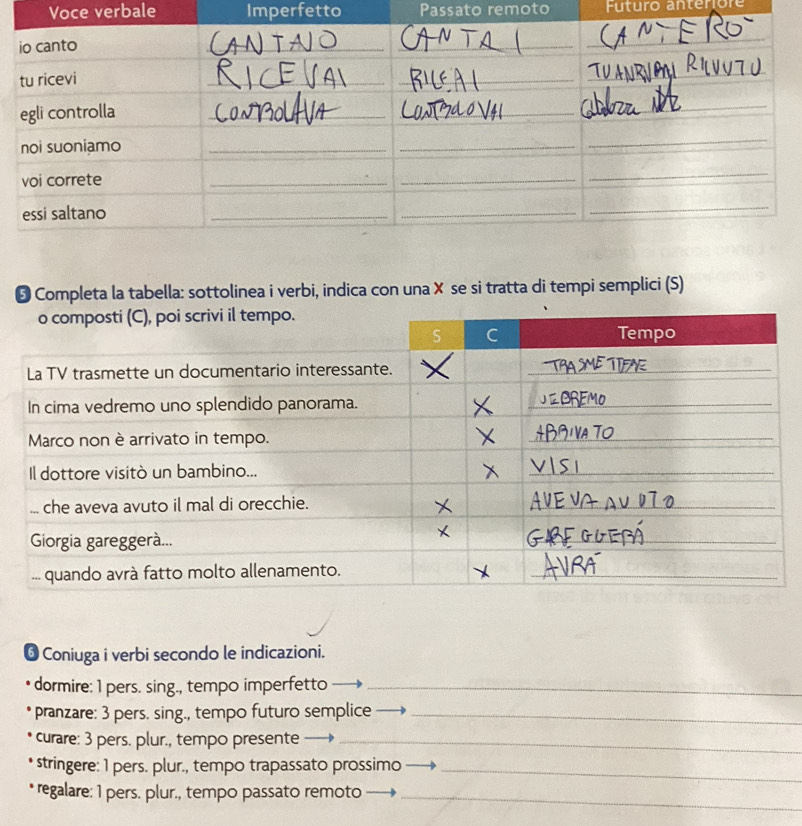 Voce verbale Imperfetto Passato remoto Futuro anteriore
io canto CANTAVO CANTAI CANTERO
tu ricevi RICEVAI RICEAI TU RICVUTO
egli controlla CONTROLAVA CONTROLOVAI
noi suoniamo
voi correte
essi saltano
5 Completa la tabella: sottolinea i verbi, indica con una X se si tratta di tempi semplici (S)
o composti (C), poi scrivi il tempo.
S C Tempo
La TV trasmette un documentario interessante. X TRASMETTERE
In cima vedremo uno splendido panorama. X VEDREMO
Marco non è arrivato in tempo. X ARRIVATO
Il dottore visitò un bambino... X VISI
... che aveva avuto il mal di orecchie. X AVEVA AVUTO
Giorgia gareggerà... X GAREGGERÁ
... quando avrà fatto molto allenamento. X AVRÁ
6 Coniuga i verbi secondo le indicazioni.
• dormire: 1 pers. sing., tempo imperfetto →
• pranzare: 3 pers. sing., tempo futuro semplice →
• curare: 3 pers. plur., tempo presente →
• stringere: 1 pers. plur., tempo trapassato prossimo →
• regalare: 1 pers. plur., tempo passato remoto →